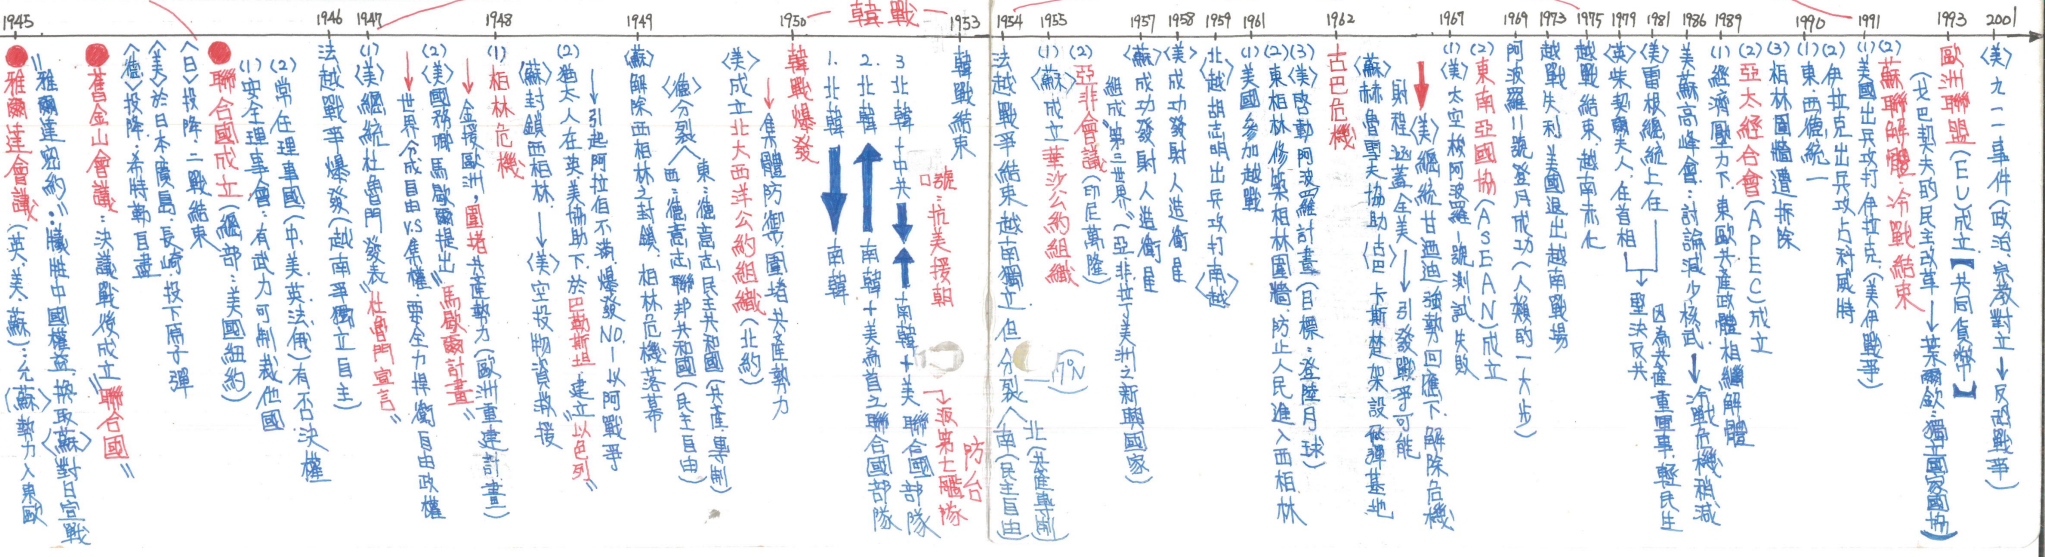 1945
1946
1947
1948
1949
1950
韓戰
1953
1954
1955
1957
1958
1959
1961
1962
1967
1969
1973
1975
1979
1981
1986
1989
1990
1991
1993
2001
雅爾達會議(英.美.蘇)…允〈蘇〉勢力入東歐
"雅爾達密約":犧牲中國權益.換取〈蘇〉對日宣戰
舊金山會議:決議戰後成立"聯合國"
〈德〉投降.希特勒自盡
〈美〉於日本廣島.長崎投下原子彈
〈日〉投降.二戰結束
聯合國成立(總部:美國紐約)
(1)安全理事會:有武力可制裁他國
(2)常任理事國(中.美.英.法.俄)有否決權
法越戰爭爆發(越南爭獨立自主)
(1)〈美〉總統杜魯門發表"杜魯門宣言"
→世界分成自由V.S集權.要全力捍衛自由政權
(2)〈美〉國務卿馬歇爾提出"馬歇爾計畫"
→金援歐洲,圍堵共產勢力(歐洲重建計畫)
(1)柏林危機
〈蘇〉封鎖西柏林→〈美〉空投物資救援
(2)猶太人在英美協助下.於巴勒斯坦.建立"以色列"
→引起阿拉伯不滿.爆發NO.1以阿戰爭
〈蘇〉解除西柏林之封鎖.柏林危機落幕
〈德〉分裂
西:德意志聯邦共和國(民主自由)
東:德意志民主共和國(共產專制)
〈美〉成立北大西洋公約組織(北約)
→集體防禦圍堵共產勢力
韓戰爆發
1.北韓→南韓
2.北韓←南韓+美為首之聯合國部隊
3.北韓+中共→←南韓+美.聯合國部隊
口號:抗美援朝
→派第七艦隊防台
韓戰結束
法越戰爭結束.越南獨立.但分裂
南(民主自由)
北(共產專制)
17°N
(1)〈蘇〉成立華沙公約組織
(2)亞非會議(印尼萬隆)
組成"第三世界"(亞.非.拉丁美洲之新興國家)
〈蘇〉成功發射人造衛星
〈美〉成功發射人造衛星
北越胡志明出兵攻打〈南越〉
(1)美國參加越戰
(2)東柏林修築柏林圍牆.防止人民進入西柏林
(3)〈美〉啓動阿波羅計畫(目標:登陸月球)
古巴危機
〈蘇〉赫魯雪夫協助〈古巴〉卡斯楚架設飛彈基地
射程涵蓋全美→引發戰爭可能
→〈美〉總統甘迺迪強勢回應下.解除危機
(1)〈美〉太空梭阿波羅一號測試失敗
(2)東南亞國協(ASEAN)成立
阿波羅11號登月成功(人類的一大步)
越戰失利.美國退出越南戰場
越戰結束.越南赤化
〈英〉柴契爾夫人.任首相
〈美〉雷根總統上任
→堅決反共
美蘇高峰會:討論減少核武→冷戰危機稍減
因為共產重軍事.輕民生
(1)經濟壓力下.東歐共產政體相繼解體
(2)亞太經合會(APEC)成立
(3)柏林圍牆遭拆除
(1)東.西德統一
(2)伊拉克出兵攻占科威特
(1)美國出兵攻打伊拉克(美伊戰爭)
(2)蘇聯解體.冷戰結束
(戈巴契夫的民主改革→葉爾欽:獨立國家國協)
歐洲聯盟(EU)成立【共同貨幣】
〈美〉九一一事件(政治.宗教對立→反恐戰爭)